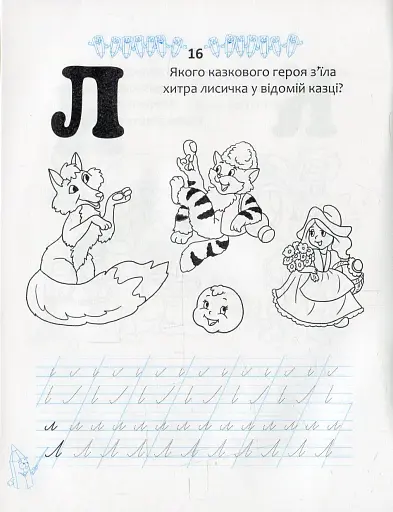 16
Л
Якого казкового героя з'їла
хитра лисичка у відомій казці?
л л л л л л л л л л л л
Л Л Л Л Л Л Л Л Л Л